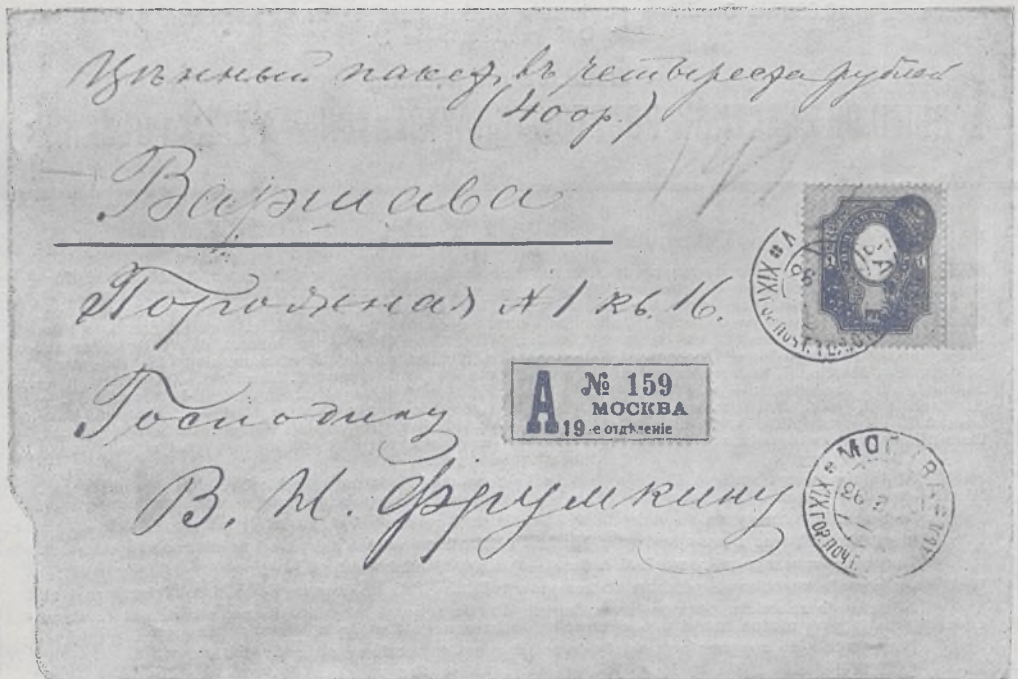 Цѣнный пакетъ въ четыреста рублей
(400р.)
Варшава
№ 1 кв. 16.
Господину
В. И. Фрумкину
А № 159
МОСКВА
19-е отдѣленіе
МОСКВА
XIX ГОР. ПОЧТ.
XIX ГОР. ПОЧТ.